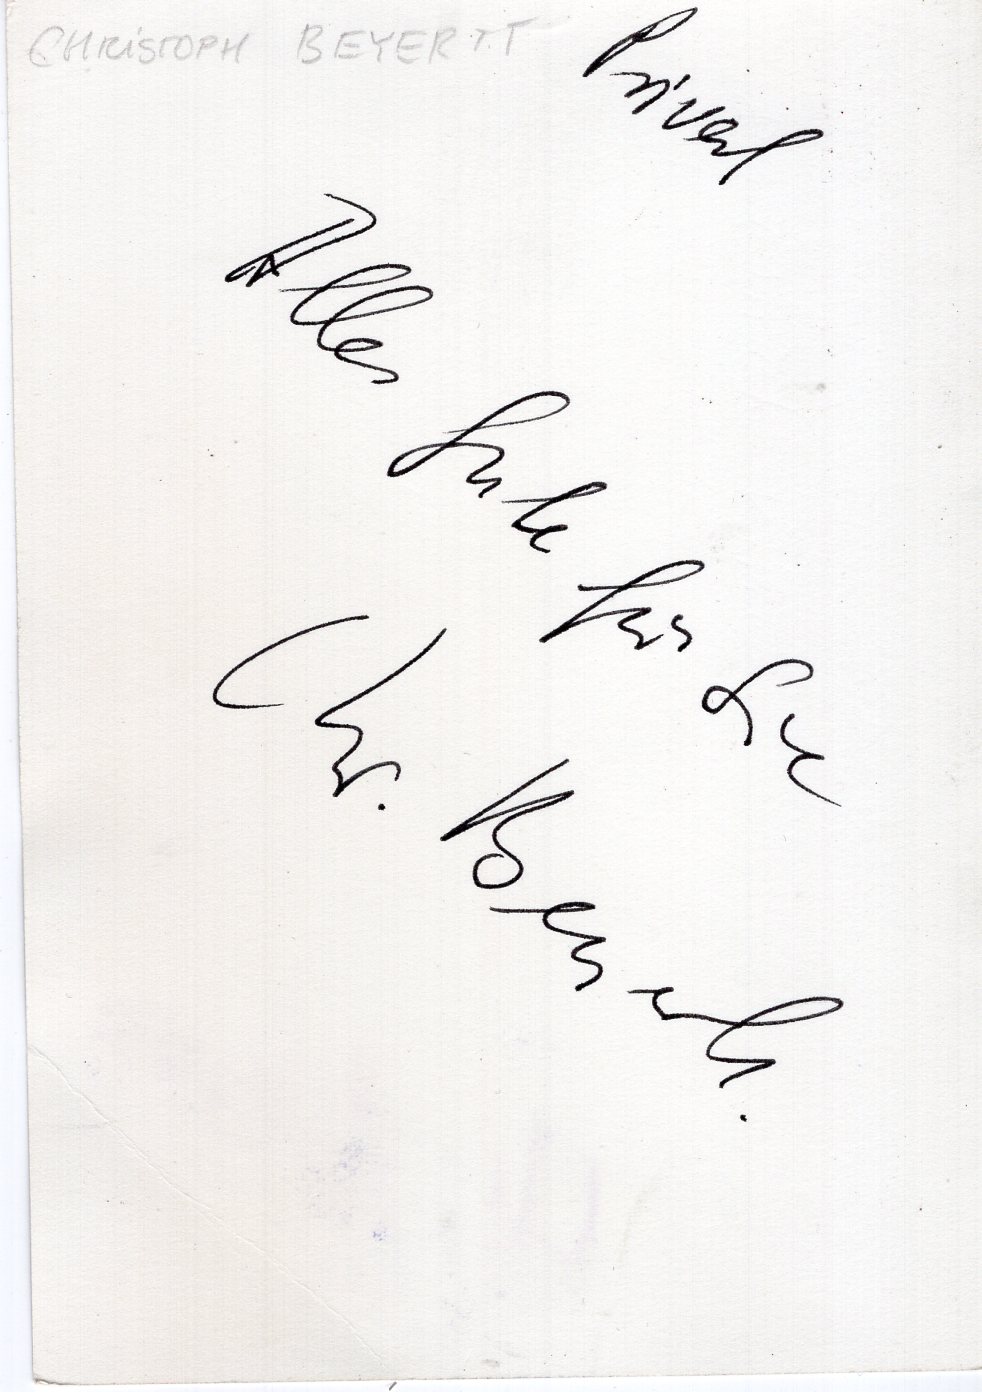 CHRISTOPH BEYERTT
Privat
Alles Gute für Sie
Chr. Beyertt.